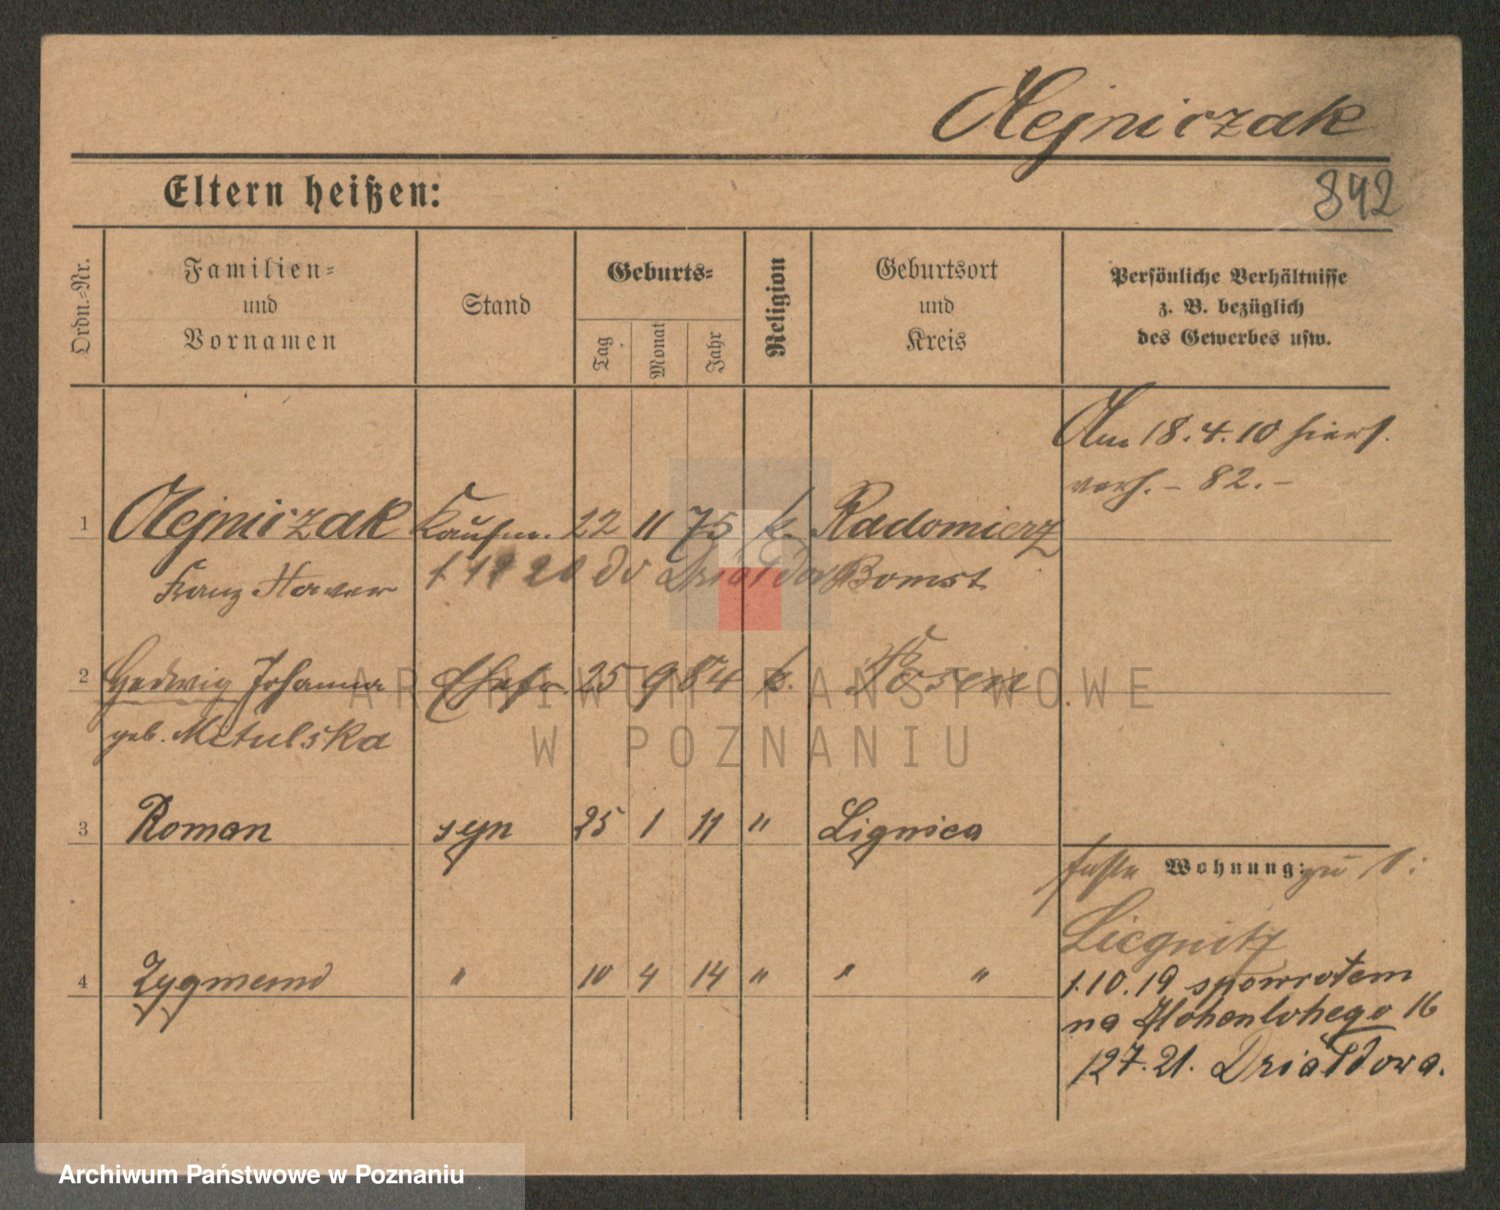 Olejniczak
842
Eltern heißen:
Ordn.-Nr. Familien- und Vornamen Stand Geburts- Tag Monat Jahr Religion Geburtsort und Kreis Persönliche Verhältnisse z. B. bezüglich des Gewerbes usw.
Am 18.4.10 hiers.
verh. – 82. –
1 Olejniczak Kaufm. 22 11 75 k. Radomierz
Franz Xaver 20 do Działdowa Bomst
2 Hedwig Johanna Ehefr. 25 9 84 k. Posen
geb. Metulska
3 Roman syn 25 1 11 " Lignica
feste Wohnung: zu 1:
Liegnitz
4 Zygmund " 10 4 14 " " "
1.10.19 spowrotem
na Hohenlohego 16
12 7. 21. Działdowa.
ARCHIWUM PAŃSTWOWE
W POZNANIU
Archiwum Państwowe w Poznaniu